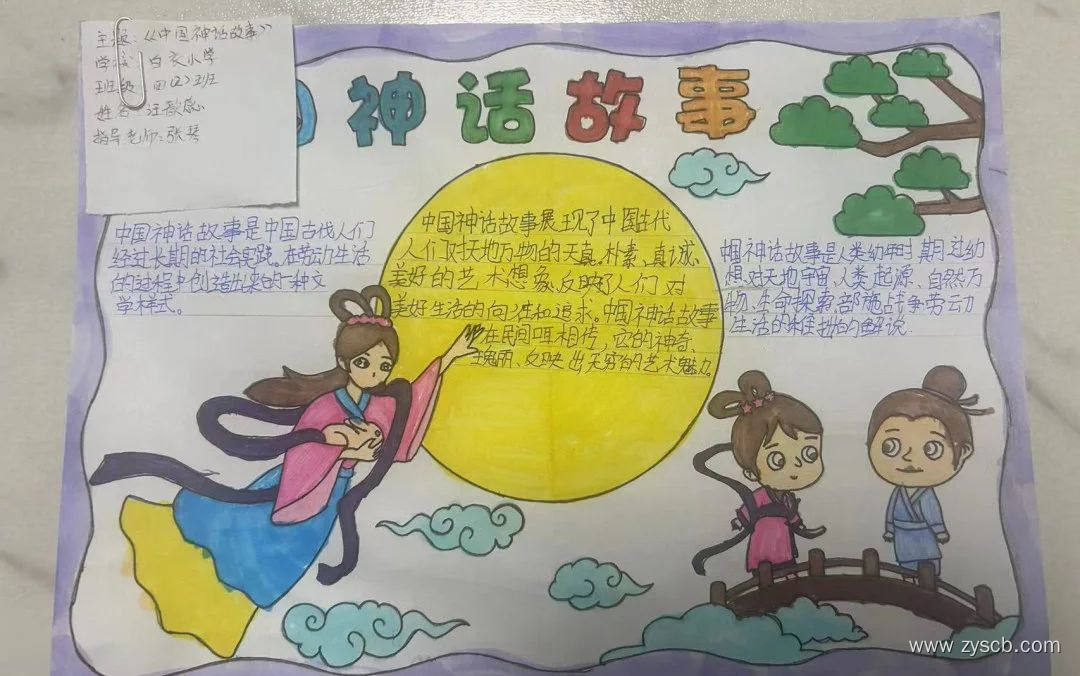 主题：《中国神话故事》
学校 白衣小学
班级 四(2)班
姓名 汪歆
指导老师：张琴
神话故事
中国神话故事是中国古代人们
经过长期的社会实践。在劳动生活
的过程中创造出来的一种文
学样式。
中国神话故事展现了中国古代
人们对天地万物的天真、朴素、真诚、
美好的艺术想象,反映了人们对
美好生活的向往和追求。中国神话故事
在民间口耳相传，它的神奇、
瑰丽、反映出无穷的艺术魅力。
中国神话故事是人类幼年时期过幼
想对天地宇宙、人类起源、自然万
物、生命探索、部族战争劳动
生活的稚拙的解说
www.zyscb.com